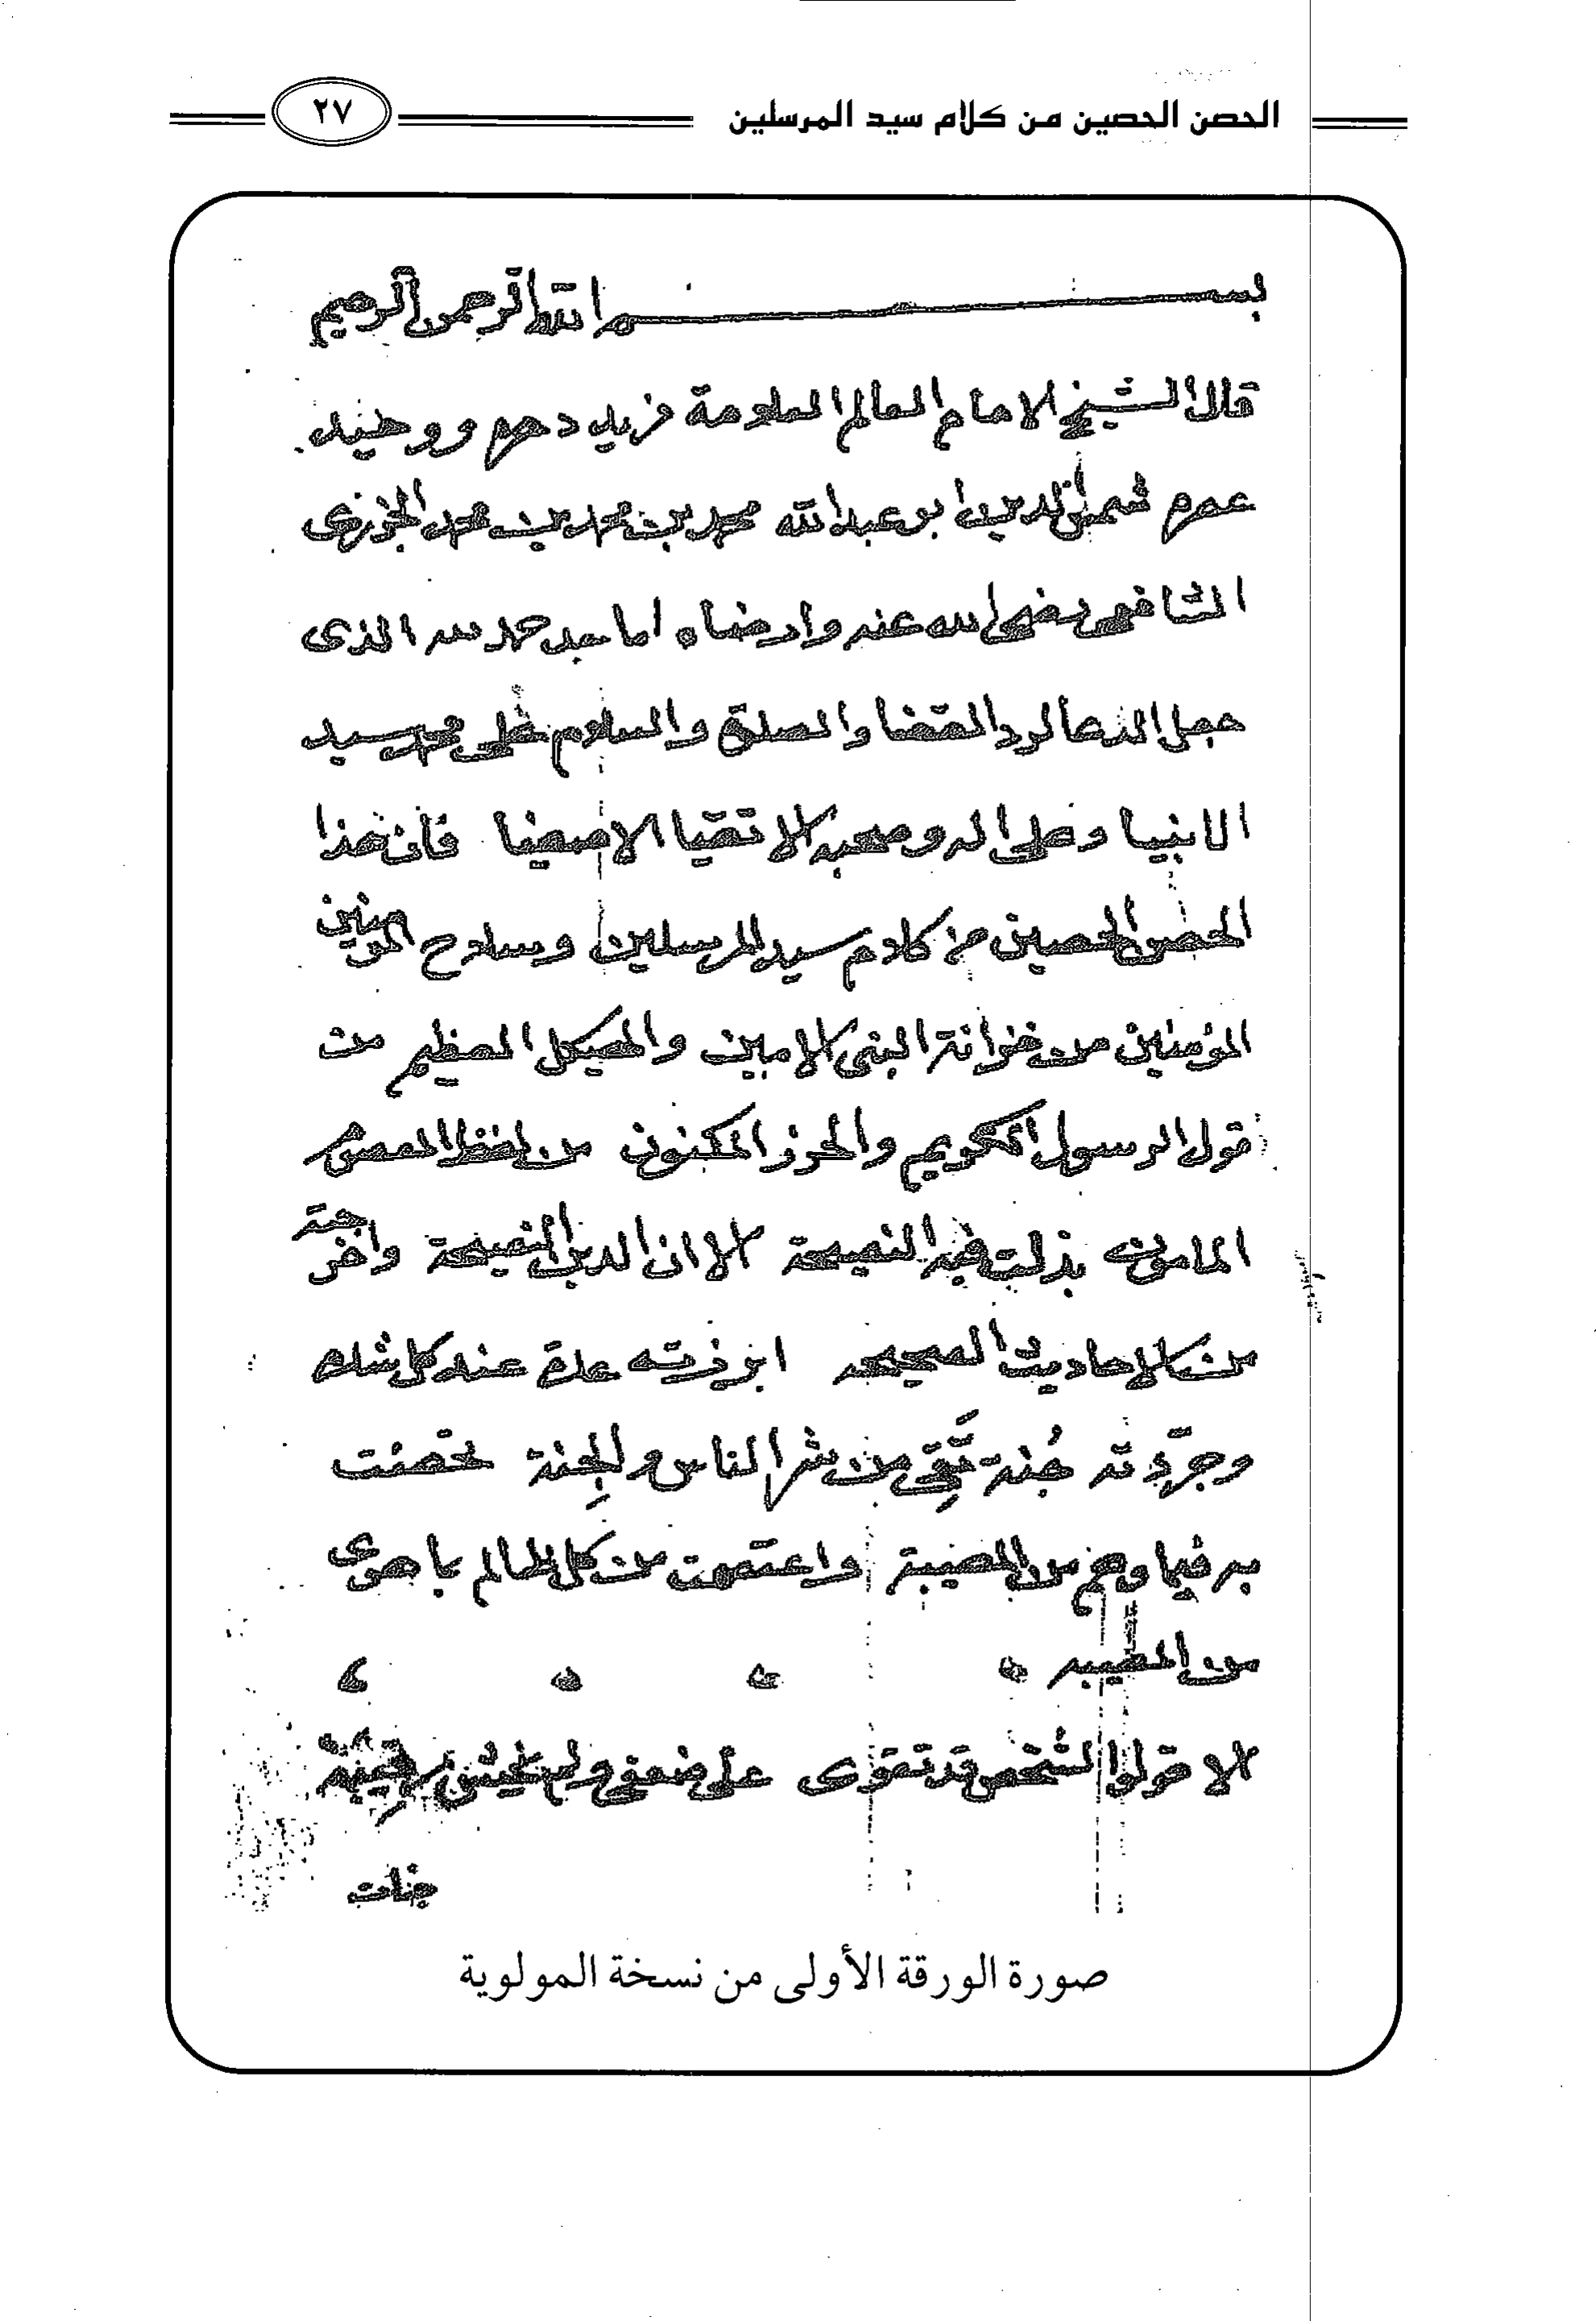 الحصن الحصين من كلام سيد المرسلين
٢٧
بسم الله الرحمن الرحيم
قال الشيخ الامام العالم العلامة فريد دهره ووحيد
عصره شمس الدين ابو عبد الله محمد بن محمد بن محمد الجزرى
الشافعى رضى الله عنه وارضاه اما بعد حمد لله الذى
جعل الدعا لرد القضا والصلوة والسلام على محمد سيد
الانبيا وعلى اله وصحبه الاتقيا الاصفيا فان هذا
الحصن الحصين من كلام سيد المرسلين وسلاح المومنين
المؤمنين من خزانة النبى الامين والهيكل العظيم من
قول الرسول الكريم والحرز المكنون من لفظ المعصوم
المامون بذلت فيه النصيحة الا ان الدين النصيحة واخرجته
من الاحاديث الصحيحه ابرزته عدة عند كل شدة
وجرّدته جُنة تَقِى من شر الناس والجِنة تحصنت
به فيما وهم من المصيبة واعتصمت من كل ظالم بما حوى
من المصيبه
الا قولوا لشخص قد تقوى على ضعفى ولم يخش رقيبه
خبات
صورة الورقة الأولى من نسخة المولوية